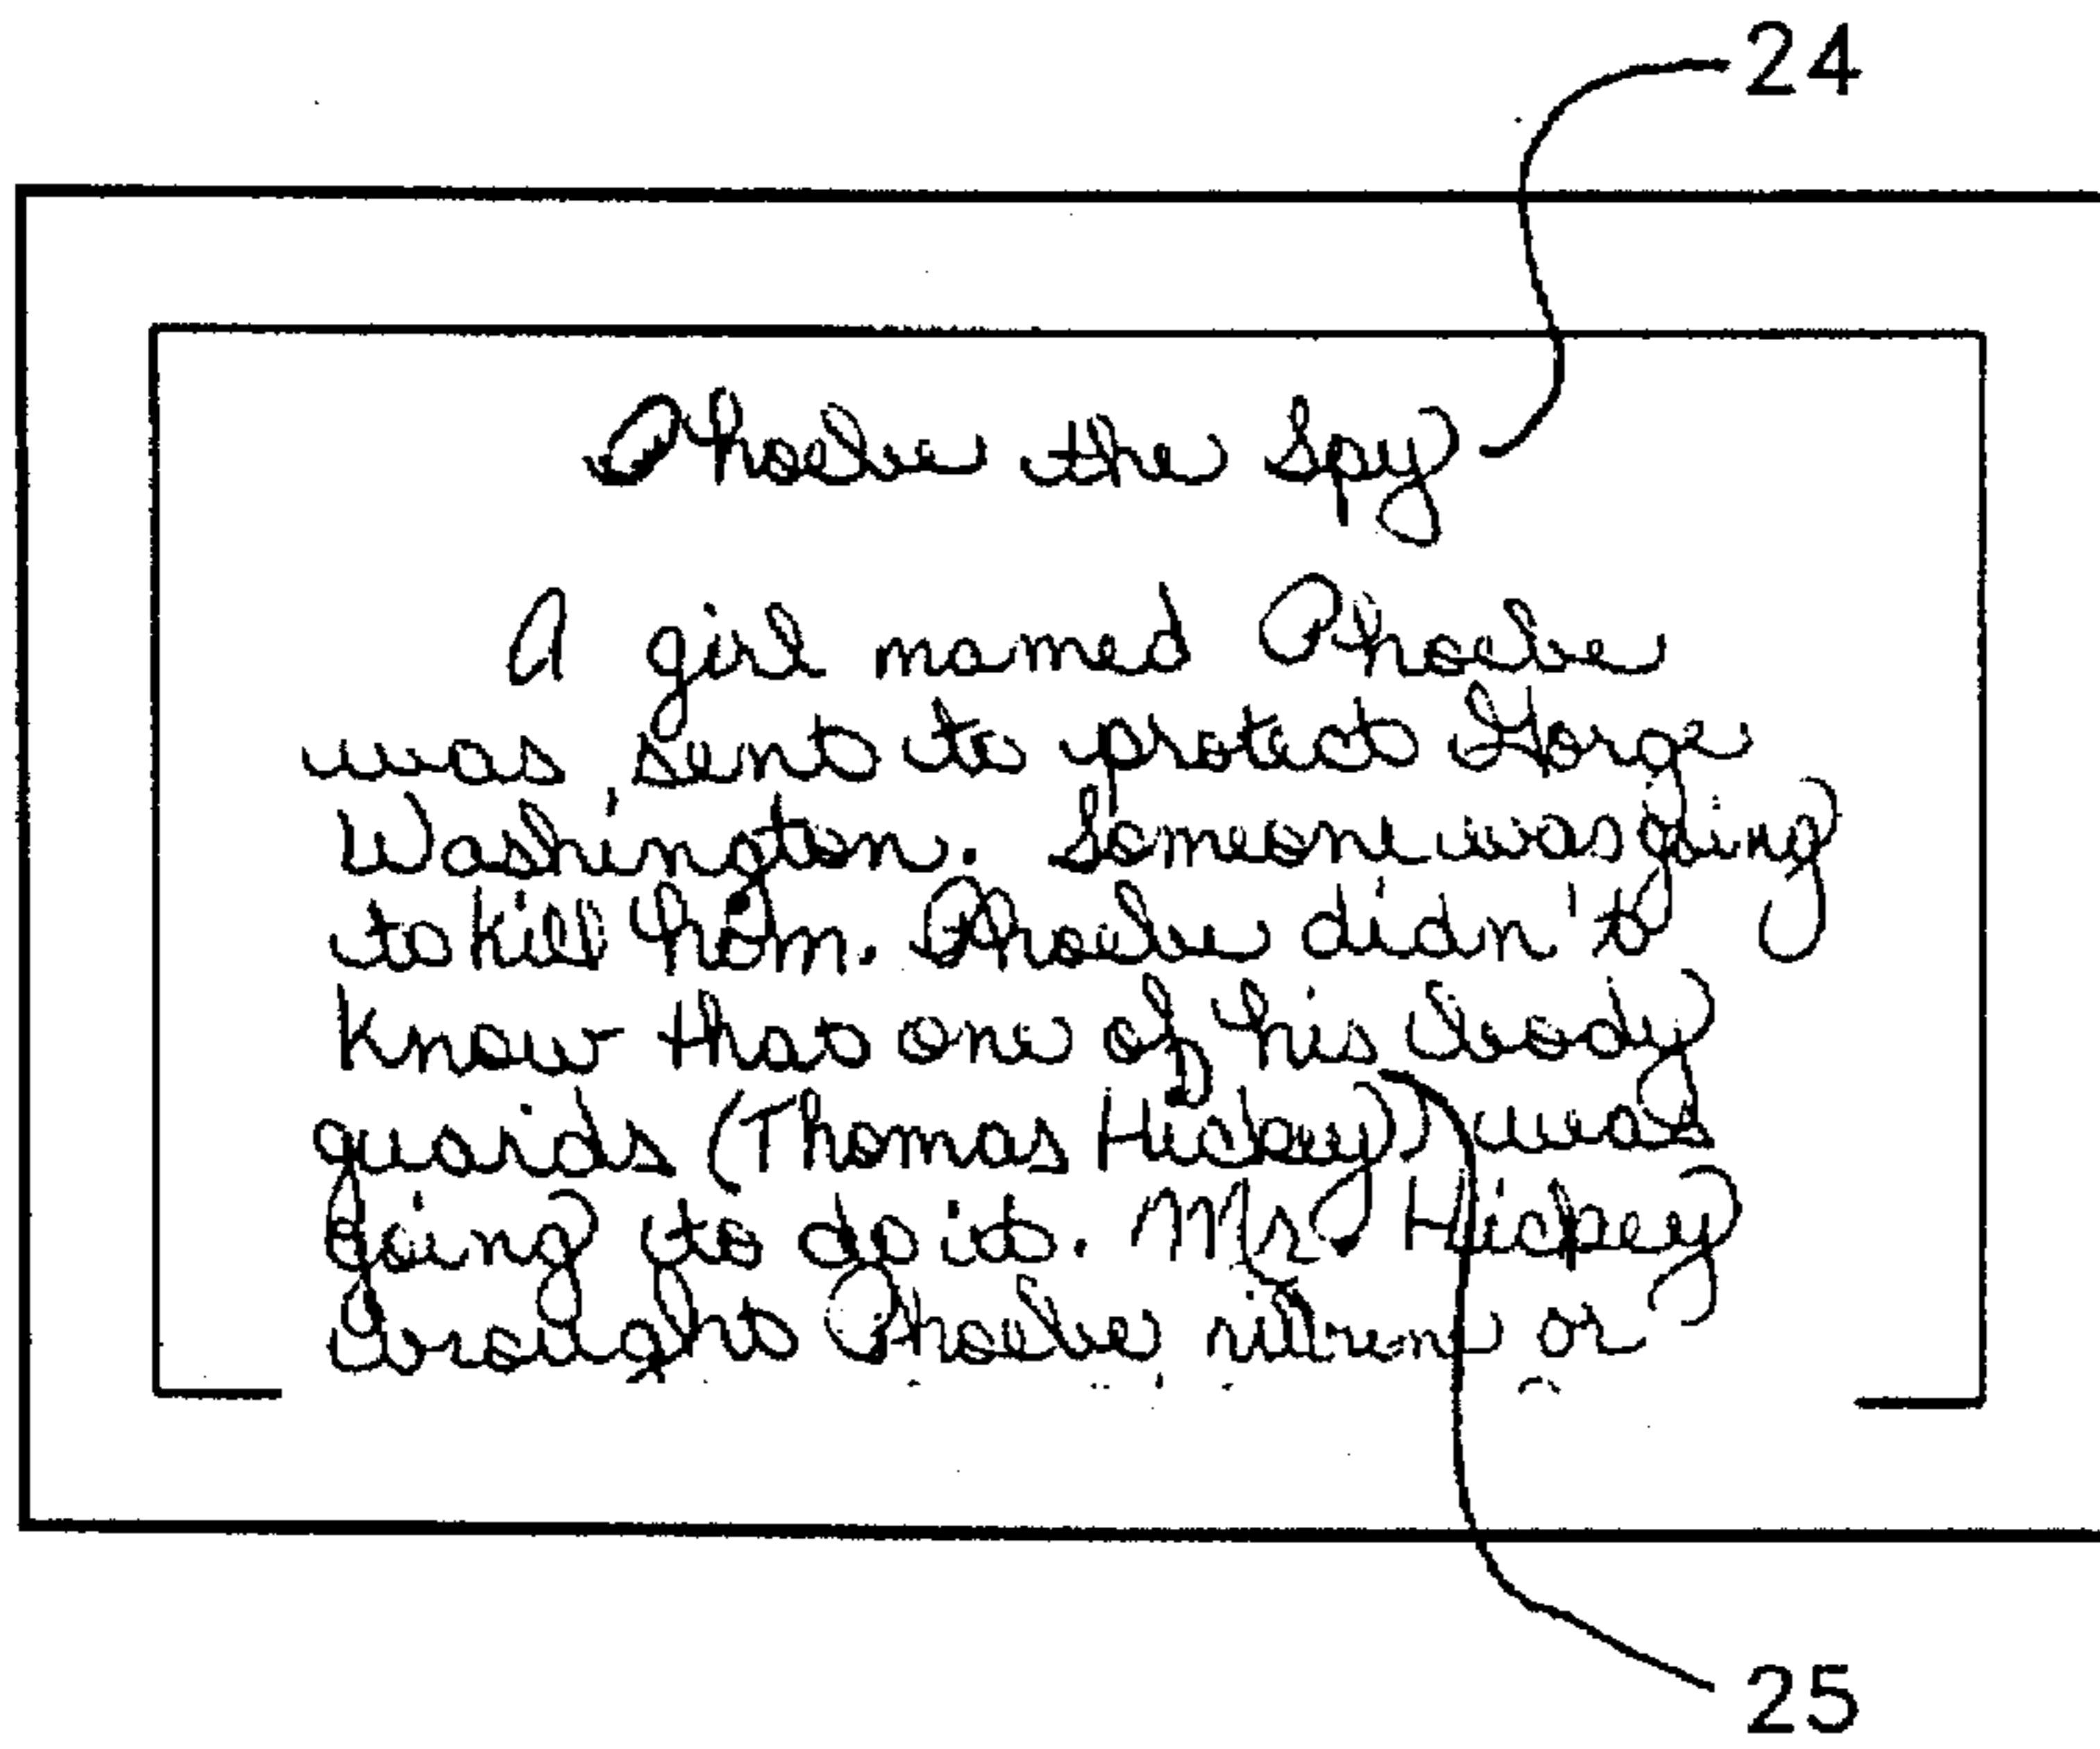 24
Phoebe the Spy
A girl named Phoebe
was sent to protect Gorge
Washington. Someone was going
to kill him. Phoebe didn't
know that one of his body
guards (Thomas Hickey) was
going to do it. Mr. Hickey
brought Phoebe or
25